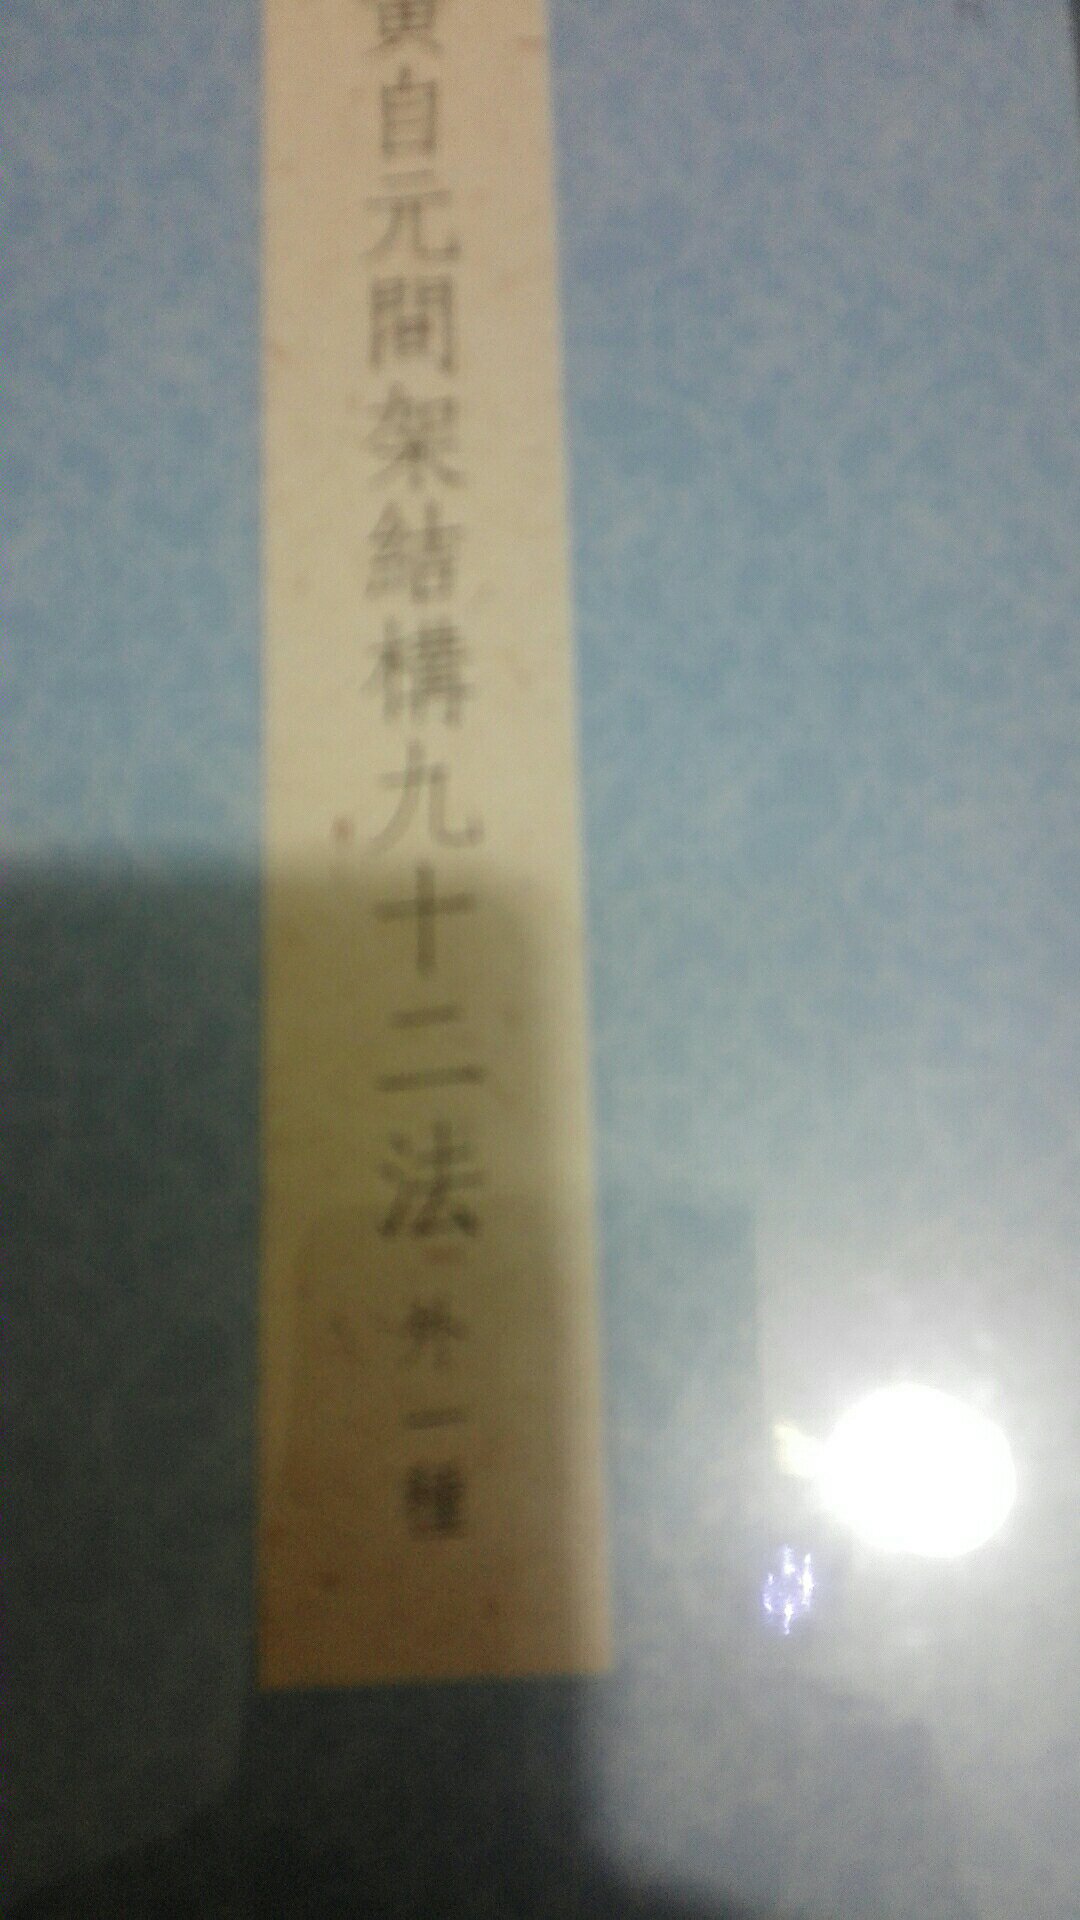 黄自元間架結構九十二法 外一種